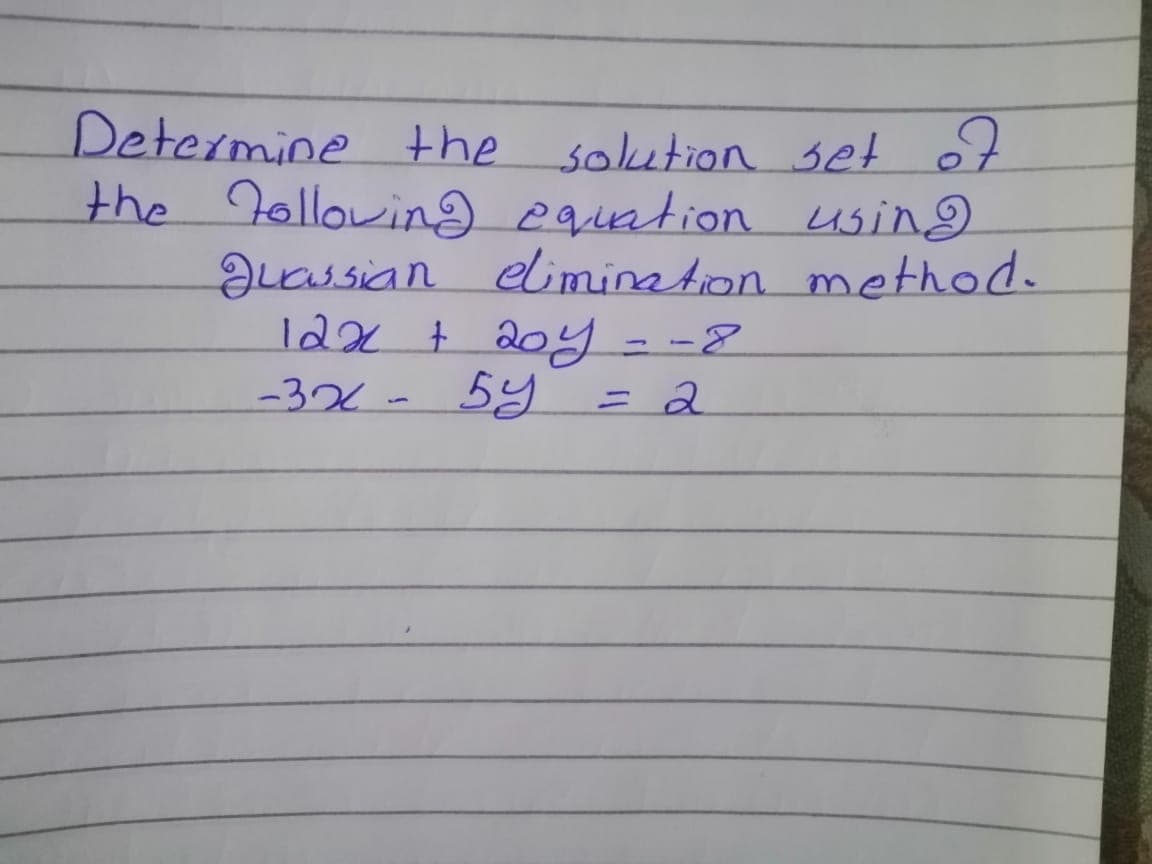 Determine the solution set of
the following equation using
guassian elimination method.
12x + 20y = -8
-3x - 5y = 2